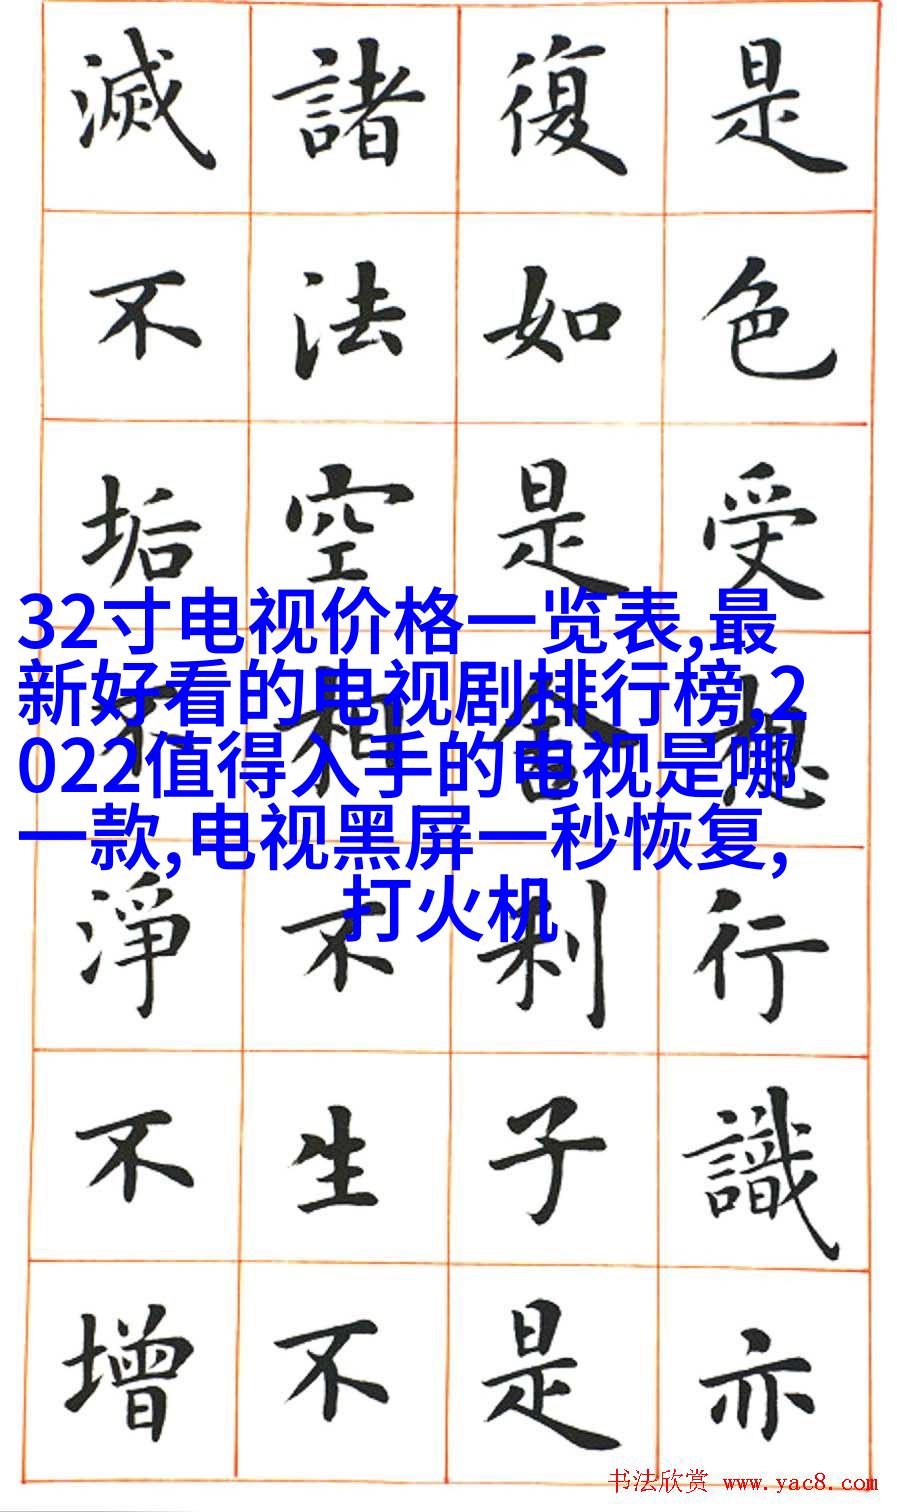 是色受想行識亦
復如是舍利子是
諸法空相不生不
滅不垢不淨不增
32寸电视价格一览表,最
新好看的电视剧排行榜,2
022值得入手的电视是哪
一款,电视黑屏一秒恢复,
打火机
书法欣赏 www.yac8.com